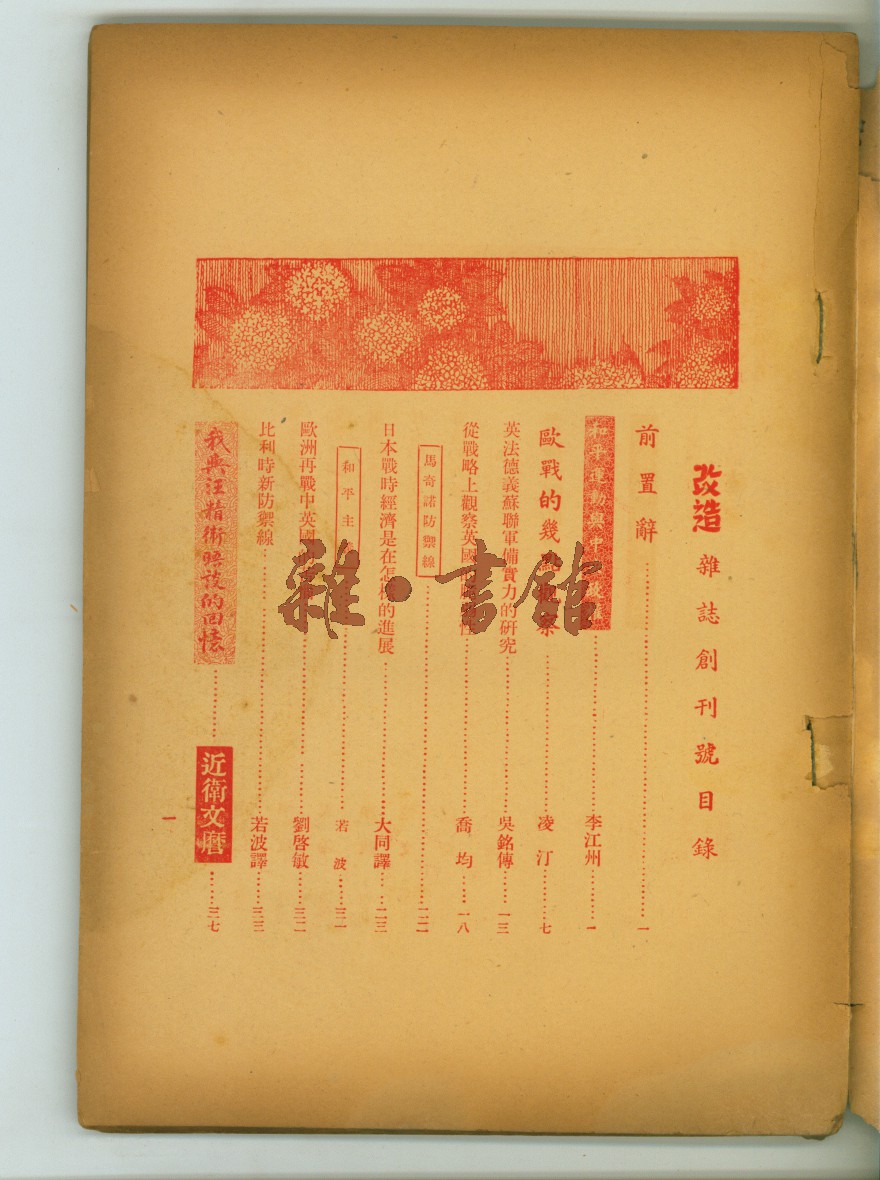 改造 雜誌創刊號目錄
前置辭……一
和平運動與中……李江州……一
歐戰的幾……察……凌汀……七
英法德義蘇聯軍備實力的研究……吳銘傳……一三
從戰略上觀察英國……性……喬均……一八
馬奇諾防禦線……二二
日本戰時經濟是在怎樣的進展……大同譯……二三
和平主……若波……三一
歐洲再戰中英國……劉啓敏……三二
比利時新防禦線……若波譯……三三
我與汪精衛晤談的回憶……近衛文麿……三七
一
雜·書館